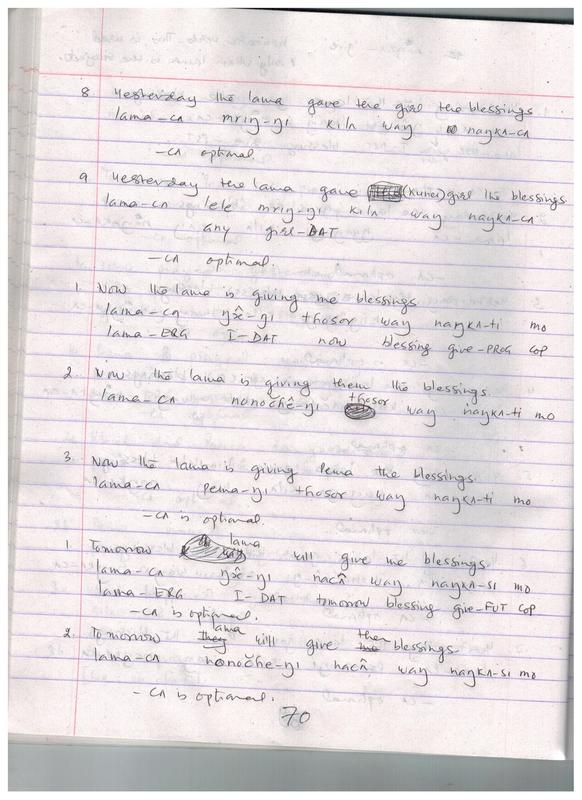 8 Yesterday the lama gave the girl the blessings
lama-cʌ mriŋ-ŋi kilʌ way nayŋkʌ-cʌ
-cʌ optional.
9 Yesterday the lama gave (Kunei) girl the blessings.
lama-cʌ lele mriŋ-ŋi kilʌ way nayŋkʌ-cʌ
any girl-DAT
-cʌ optional.
1. Now the lama is giving me blessings
lama-cʌ ŋx̂-ŋi thosor way nayŋkʌ-ti mo
lama-ERG I-DAT now blessing give-PROG COP
2. Now the lama is giving them the blessings.
thosor
lama-cʌ nonočhê-ŋi way nayŋkʌ-ti mo
3. Now the lama is giving Pema the blessings.
lama-cʌ pema-ŋi thosor way nayŋkʌ-ti mo
-cʌ is optional.
1. Tomorrow lama will give me blessings.
lama-cʌ ŋx̂-ŋi nacʌ̂ way nayŋkʌ-si mo
lama-ERG I-DAT tomorrow blessing give-FUT COP
-cʌ is optional.
lama them
2. Tomorrow they will give blessings.
lama-cʌ nonočhe-ŋi nacʌ̂ way nayŋkʌ-si mo
-cʌ is optional.
70